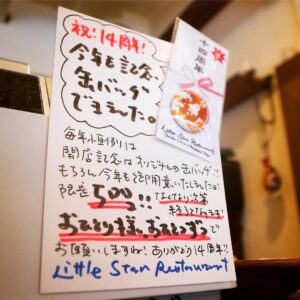 祝！14周年！
今年も記念
缶バッヂ
できました。
毎年恒例！は
開店記念はオリジナルの缶バッヂ！！
もちろん今年も御用意いたしました！
限定500コ！！なくなり次第
終了となります！
おひとり様、おひとつずつで
お願いしますね！ありがとう14周年！！
Little Star Restaurant
十四周年
Little Star Restaurant